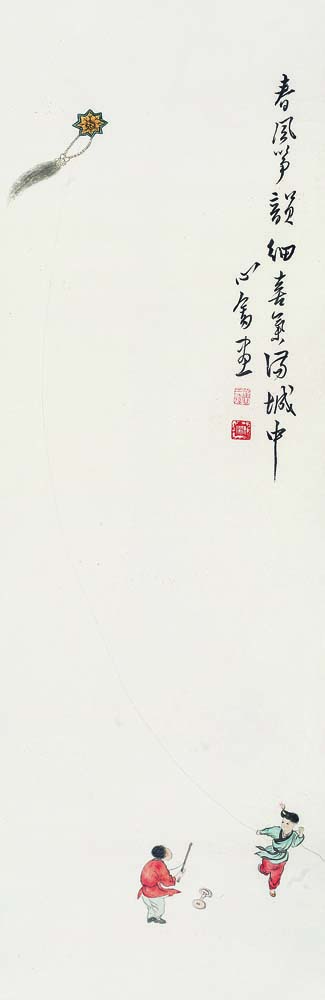 春風箏韻細喜氣滿城中
心畬畫